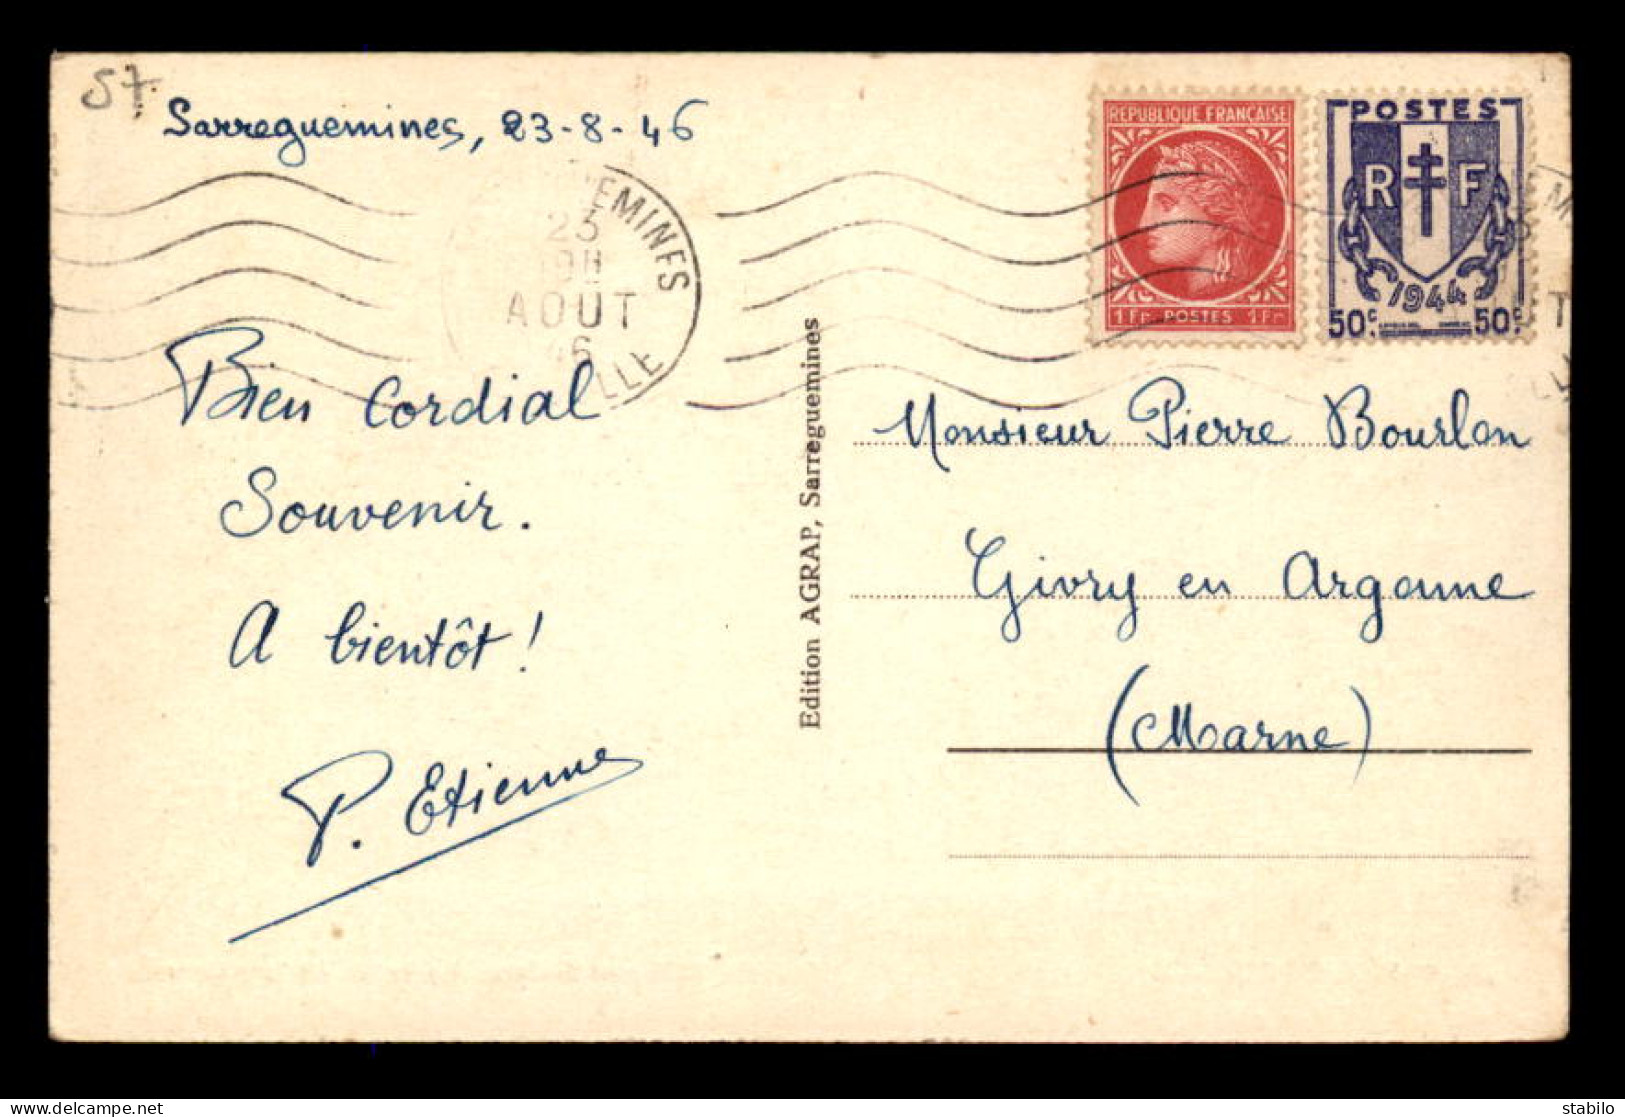 57
Sarreguemines, 23-8-46
EMINES
23
AOUT
46
LLE
RÉPUBLIQUE FRANÇAISE
1 Fr POSTES 1 Fr
POSTES
R F
1944
50c 50c
Bien Cordial
Souvenir.
A bientôt !
P. Etienne
Edition AGRAP, Sarreguemines
Monsieur Pierre Bourlon
Givry en Argonne
(Marne)
stibilo